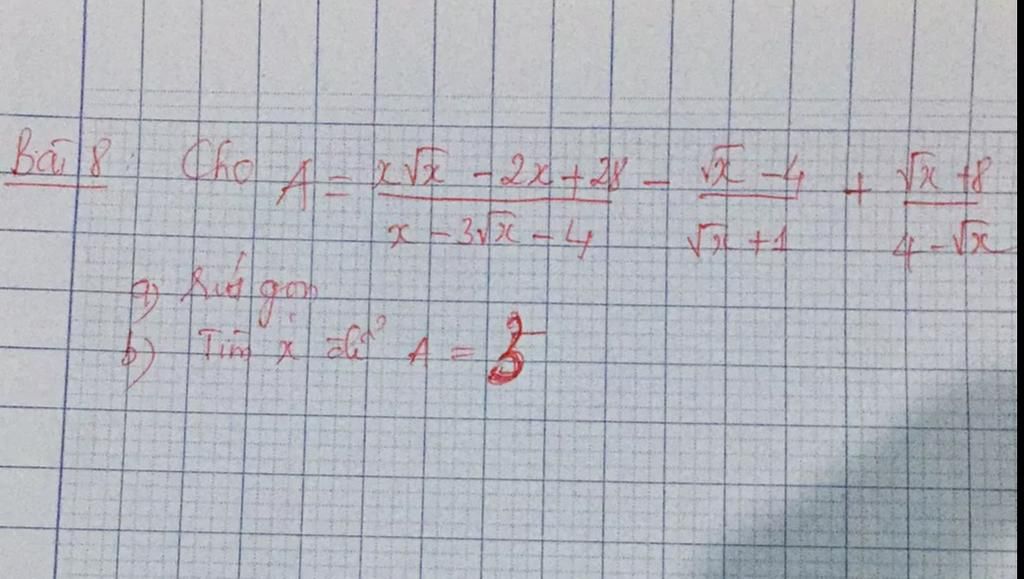 Bài 8: Cho A = \frac{x\sqrt{x} - 2x + 28}{x - 3\sqrt{x} - 4} - \frac{\sqrt{x} - 4}{\sqrt{x} + 1} + \frac{\sqrt{x} + 8}{4 - \sqrt{x}}
a) Rút gọn
b) Tìm x để A =